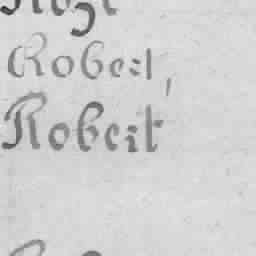 Robert,
Robert